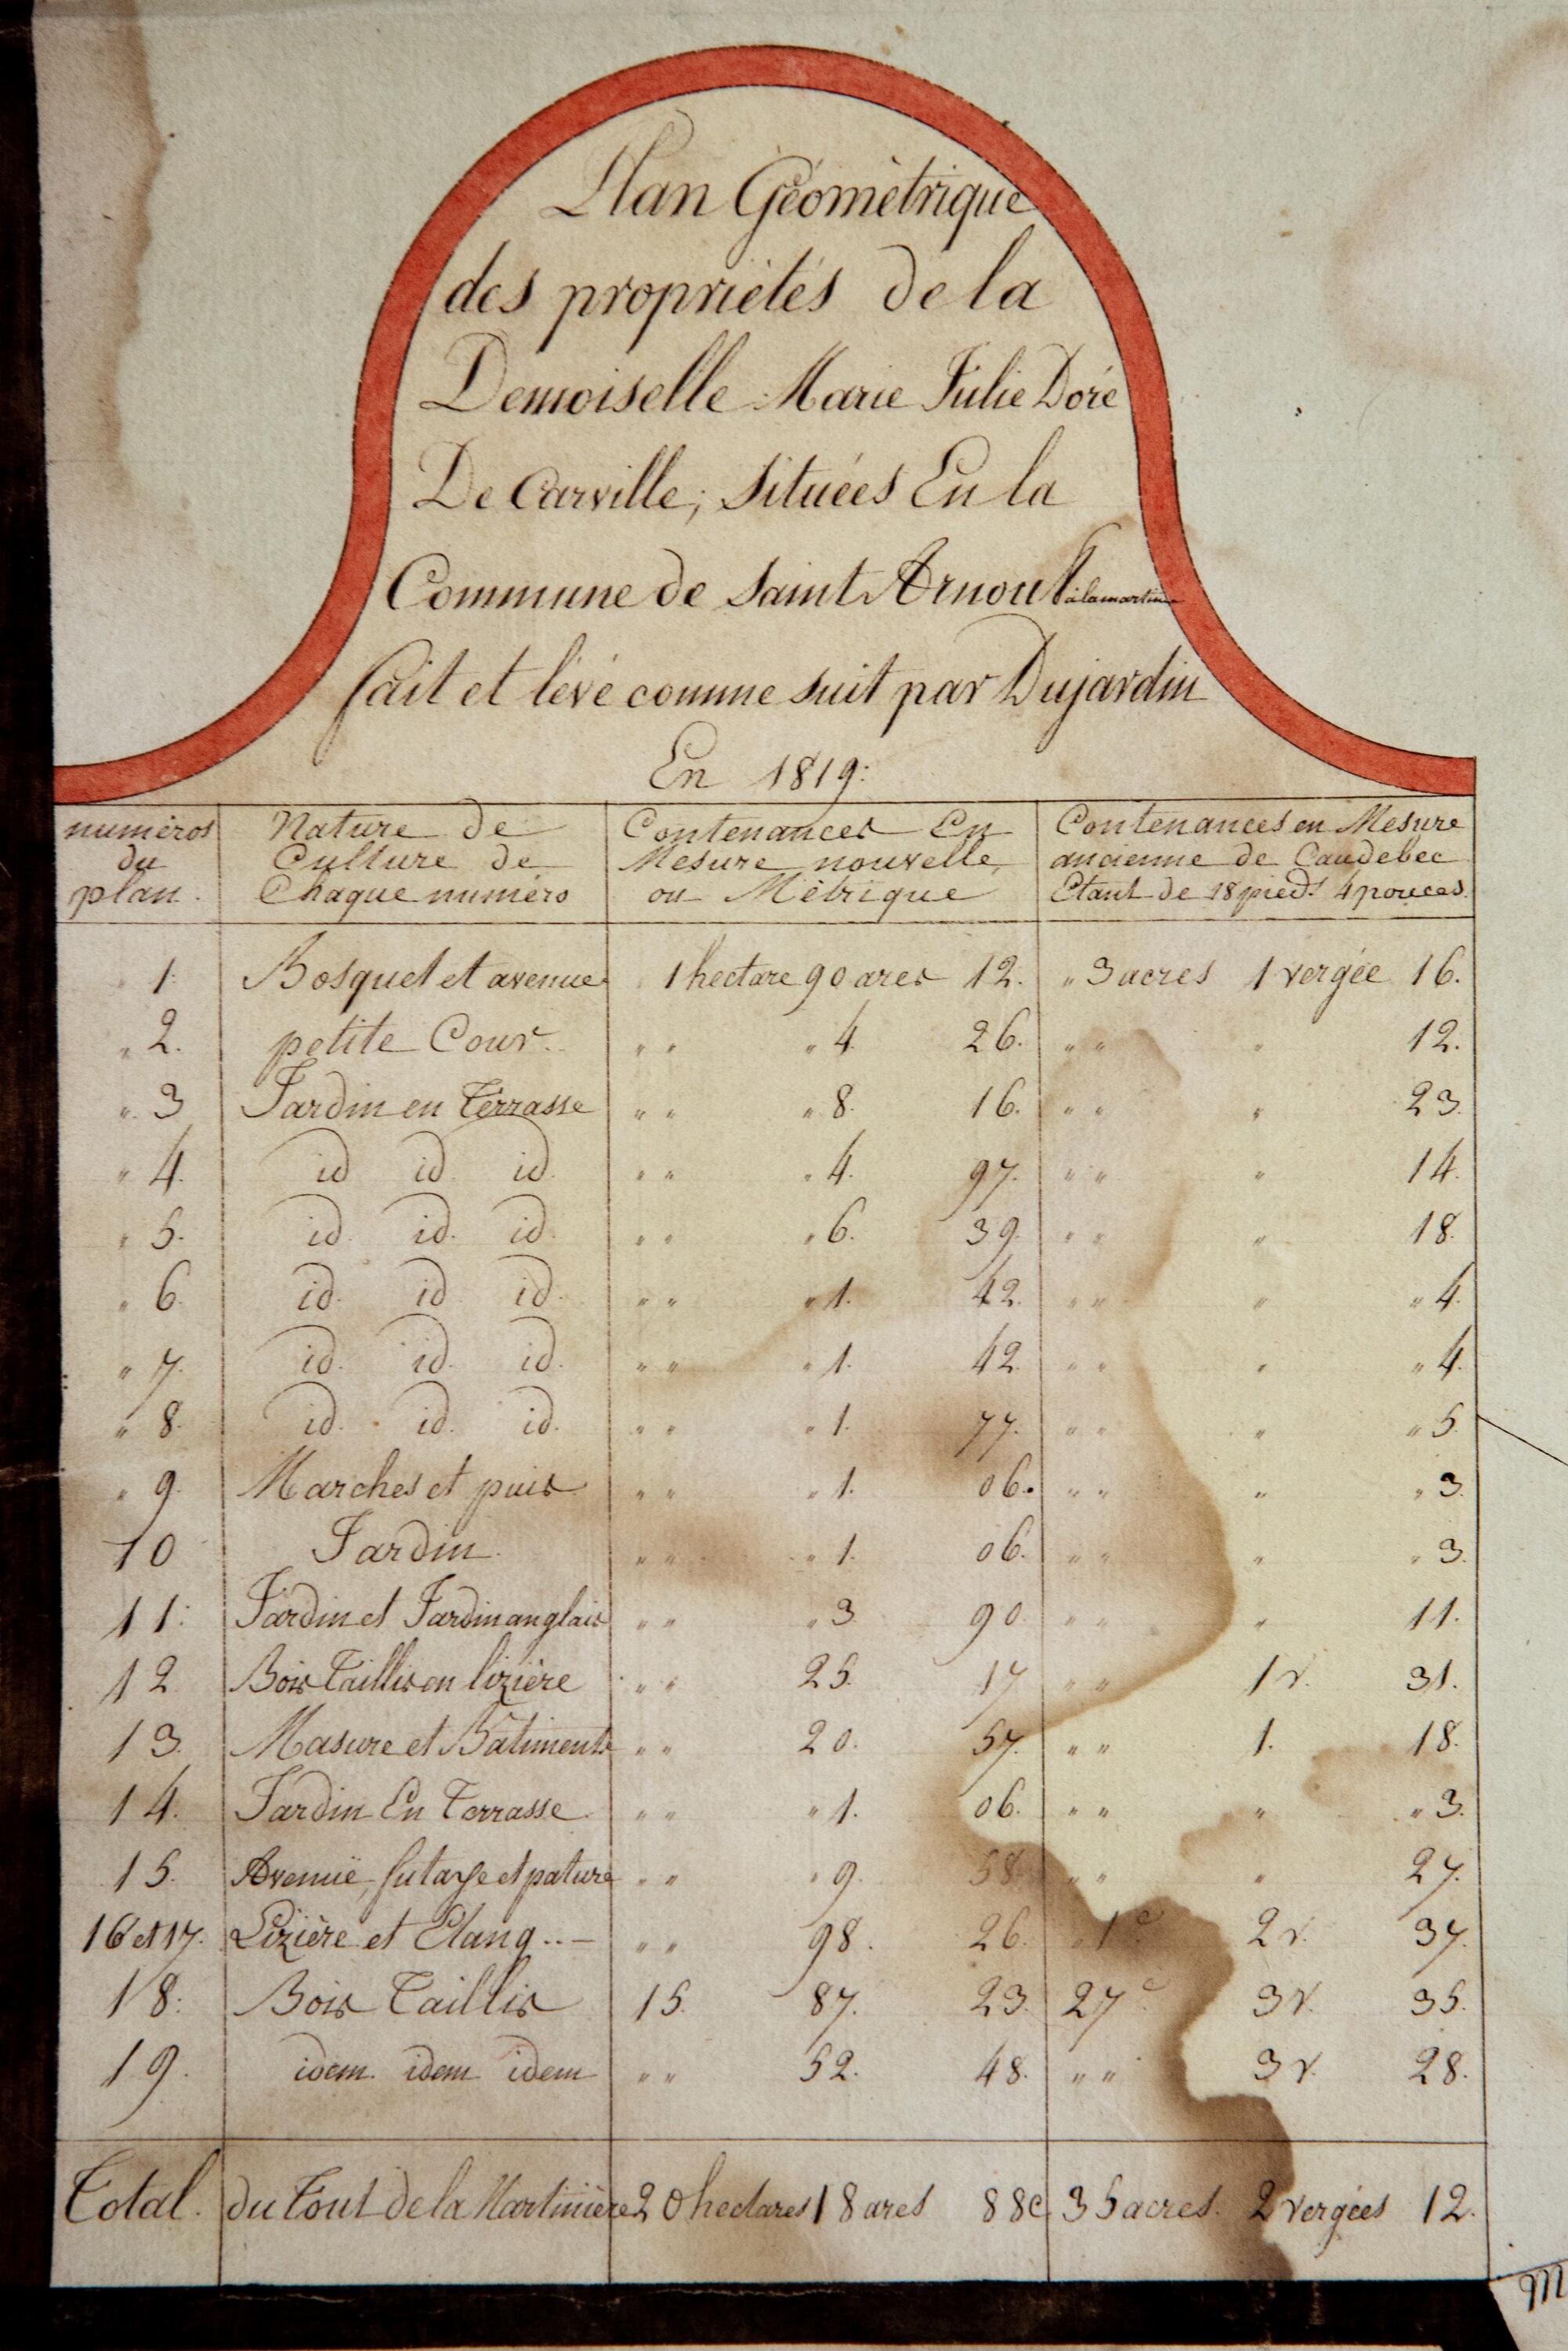 Plan Géométrique
des propriétés de la
Demoiselle Marie Julie Doré
De Carville, Situées En la
Commune de Saint Arnoult à la martin
fait et lévé comme suit par Dujardin
En 1819:
numéros du plan. Nature de Culture de Chaque numéro Contenances En Mesure nouvelle, ou Métrique Contenances en Mesure ancienne de Caudebec Etant de 18 pieds 4 pouces.
" 1. Bosquet et avenue 1 hectare 90 ares 12. " 3 acres 1 vergée 16.
" 2. petite Cour. " " " 4. 26. " " " 12.
" 3 Jardin en Terrasse " " " 8. 16. " " " 23.
" 4. id id. id. " " " 4. 97. " " " 14.
" 5. id. id. id. " " " 6. 39. " " " 18.
" 6. id. id. id. " " " 1. 42. " " " " 4.
" 7. id. id. id. " " " 1. 42. " " " " 4.
" 8. id. id. id. " " " 1. 77. " " " " 5.
" 9. Marches et puis " " " 1. 06. " " " " 3.
10 Jardin. " " " 1. 06. " " " " 3.
11: Jardin et Jardin anglais " " " 3 90. " " " 11.
12 Bois Taillis en lizière " " 25. 17 " " 1 v. 31.
13. Masure et Bâtiments " " 20. 57. " " 1. 18.
14. Jardin En Terrasse. " " " 1. 06. " " " " 3.
15. Avenüe, futaye et pature " " " 9. 58 " " " 27.
16 et 17. Lizière et Etang..- " " 98. 26. " 1 a 2 v. 37.
18: Bois Taillis 15. 87. 23. 27 a 3 v. 35.
19. idem. idem idem " " 52. 48. " " 3 v. 28.
Total. du Tout de la Martinière 20 hectares 18 ares 88c. 35 acres. 2 vergées 12.
m